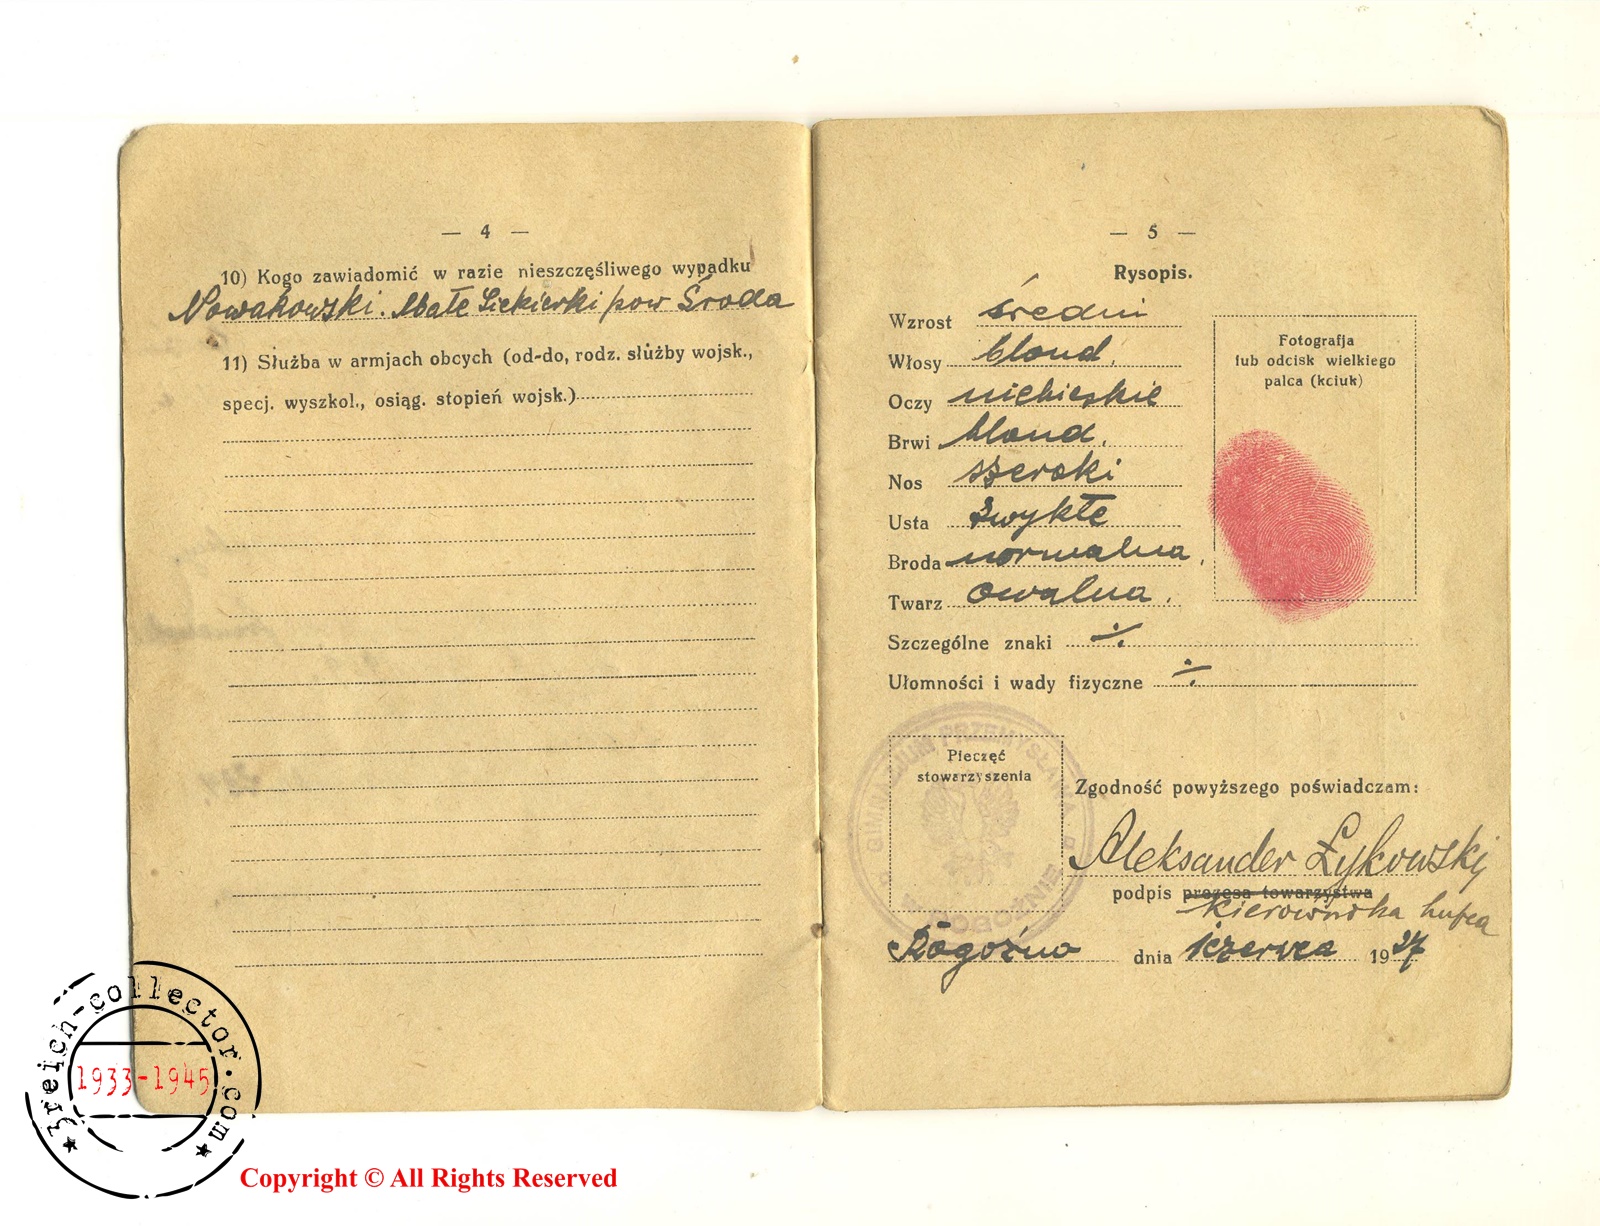 — 4 —
10) Kogo zawiadomić w razie nieszczęśliwego wypadku
Nowakowski. Małe Siekierki pow Środa
11) Służba w armjach obcych (od-do, rodz. służby wojsk.,
specj. wyszkol., osiąg. stopień wojsk.)
— 5 —
Rysopis.
Wzrost średni
Włosy blond.
Oczy niebieskie
Brwi blond.
Nos szeroki
Usta zwykłe
Broda normalna.
Twarz owalna.
Szczególne znaki ÷
Ułomności i wady fizyczne ÷
Fotografja
lub odcisk wielkiego
palca (kciuk)
Pieczęć
stowarzyszenia
GIMNAZJUM PRZEMYSŁAWA
Zgodność powyższego poświadczam:
Aleksander Łykowskij
podpis prezesa towarzystwa
kierownika hufca
Rogoźno dnia czerwca 1927
3reich-collector.com
1933-1945
Copyright © All Rights Reserved